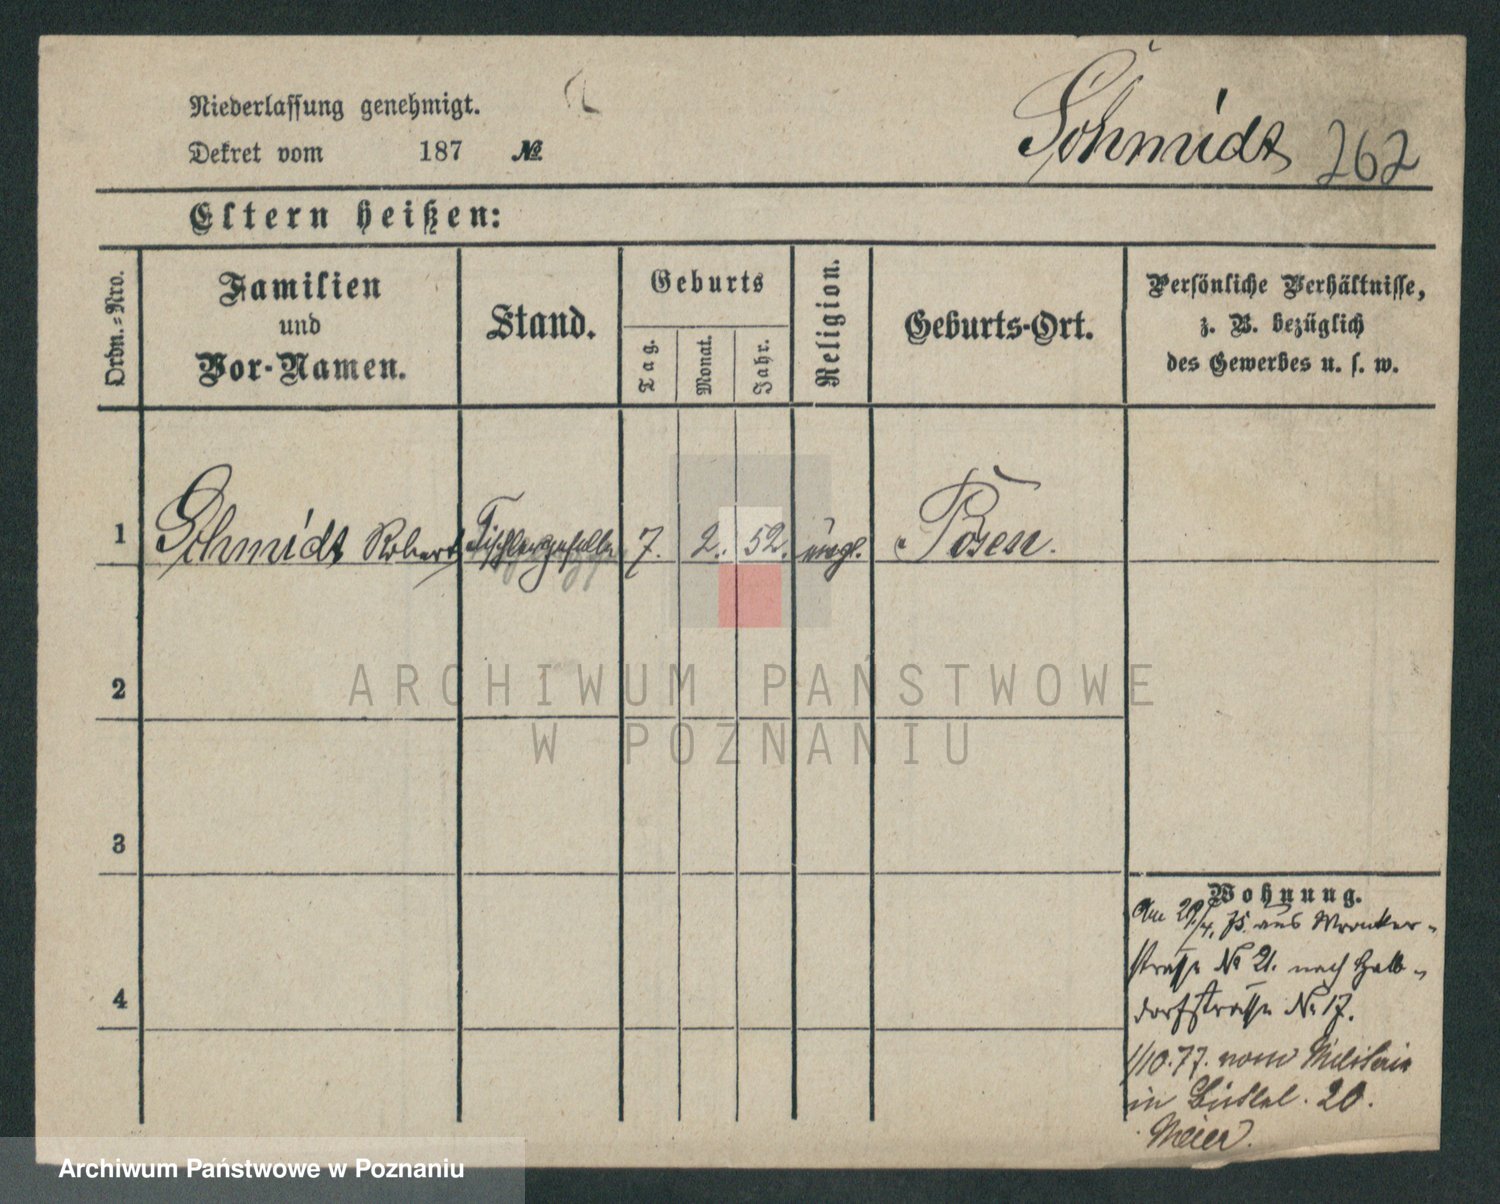 Niederlassung genehmigt.
Dekret vom 187 №
Schmidt 262
Eltern heißen:
Ordn.-Nro.
Familien und Vor-Namen.
Stand.
Geburts
Tag.
Monat.
Jahr.
Religion.
Geburts-Ort.
Persönliche Verhältnisse,
z. B. bezüglich
des Gewerbes u. s. w.
1 Schmidt Robert Tischlergeselle 7. 2. 52. evgl. Posen.
2
ARCHIWUM PAŃSTWOWE
W POZNANIU
3
Wohnung.
Am 29/4. 75. aus Wronker-
strasse № 21. nach Halb-
dorfstrasse № 17.
1/10.77. vom Militair
in 20.
Meier.
4
Archiwum Państwowe w Poznaniu